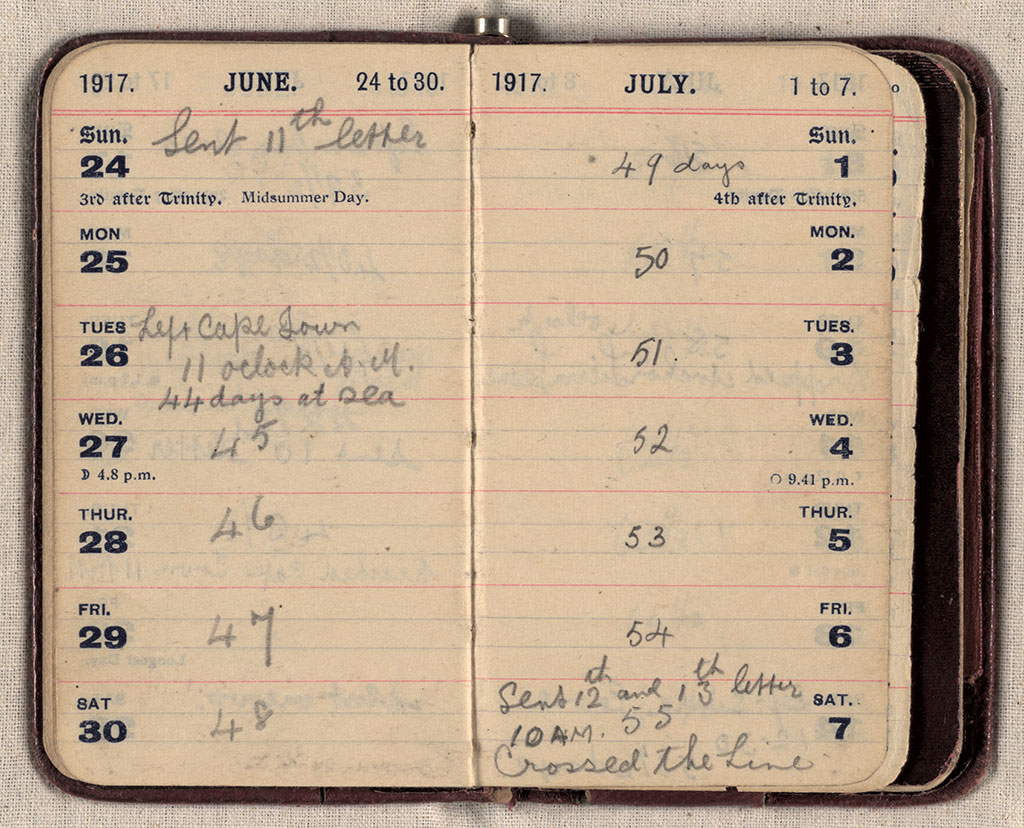 1917. JUNE. 24 to 30.
Sun. Sent 11th letter
24
3rd after Trinity. Midsummer Day.
MON
25
TUES Left Cape Town
26 11 oclock A.M.
44 days at sea
WED.
27 45
☽ 4.8 p.m.
THUR.
28 46
FRI.
29 47
SAT
30 48
1917. JULY. 1 to 7.
Sun.
49 days 1
4th after Trinity.
MON.
50 2
TUES.
51. 3
WED.
52 4
○ 9.41 p.m.
THUR.
53 5
FRI.
54 6
Sent 12th and 13th letter SAT.
10 AM. 55 7
Crossed the Line